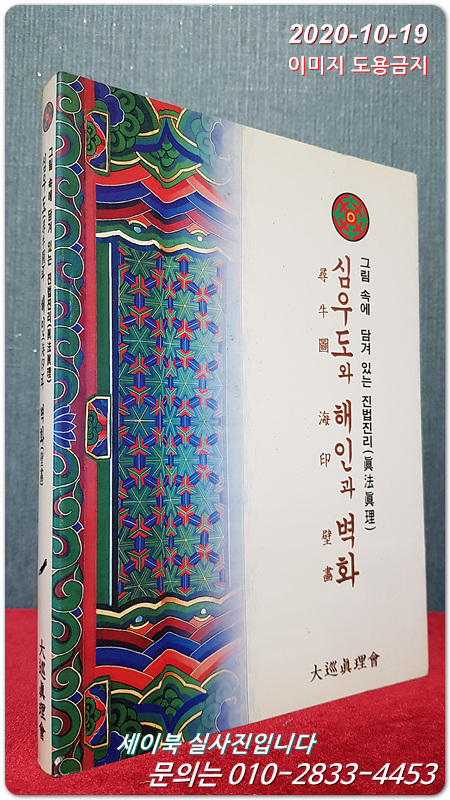 2020-10-19
이미지 도용금지
그림 속에 담겨 있는 진법진리(眞法眞理)
심우도와 해인과 벽화
尋牛圖 海印 壁畵
大巡眞理會
그림 속에 담겨 있는 진법진리(眞法眞理)
大巡眞理會
세이북 실사진입니다
문의는 010-2833-4453